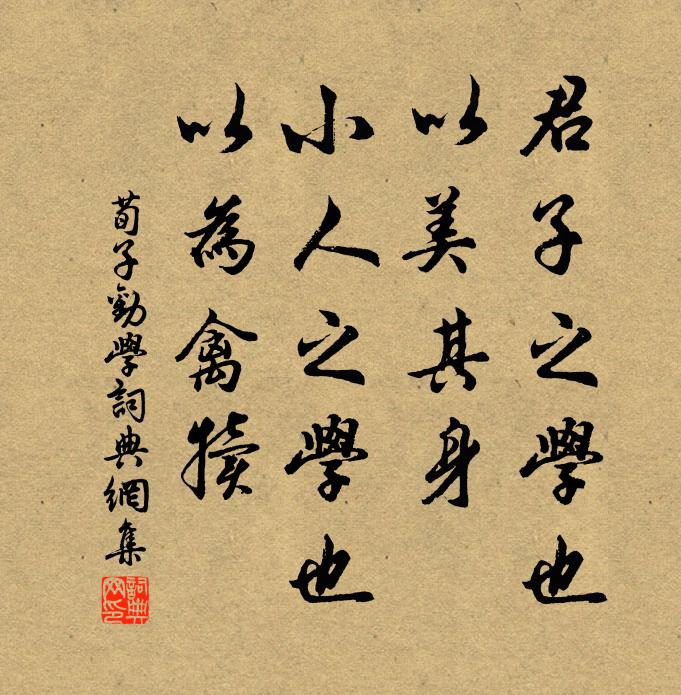 君子之學也
以美其身
小人之學也
以為禽犢
荀子勸學詞典網集
詞典网印